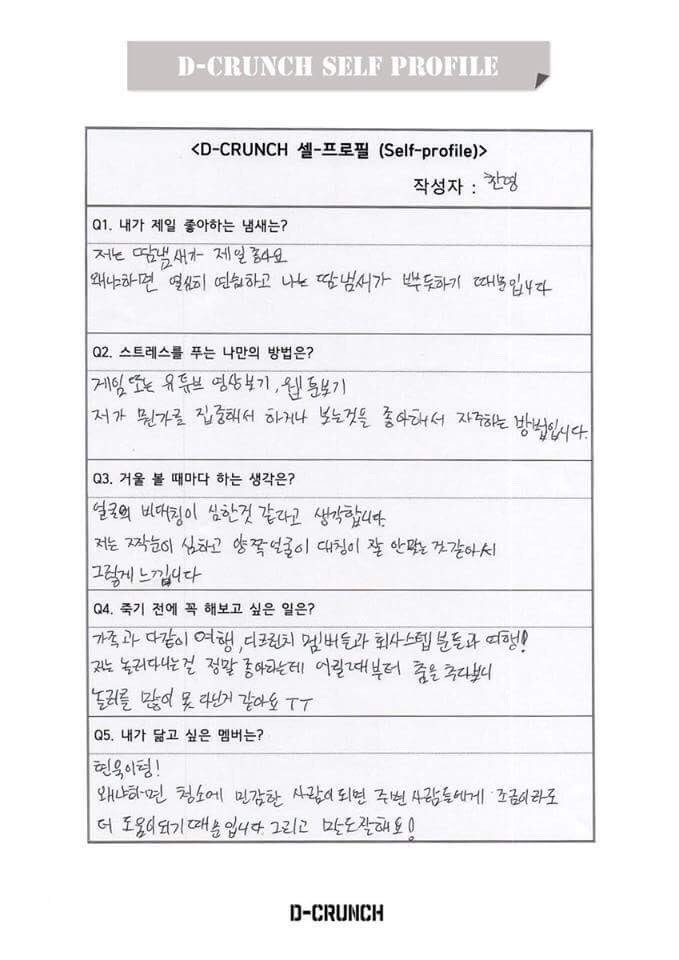 D-CRUNCH SELF PROFILE
<D-CRUNCH 셀-프로필 (Self-profile)>
작성자 : 찬영
Q1. 내가 제일 좋아하는 냄새는?
저는 땀냄새가 제일 좋아요
왜냐하면 열심히 연습하고 나는 땀냄새가 뿌듯하기 때문입니다
Q2. 스트레스를 푸는 나만의 방법은?
게임 또는 유튜브 영상보기, 웹툰보기
저가 뭔가를 집중해서 하거나 보는것을 좋아해서 자주하는 방법입니다.
Q3. 거울 볼 때마다 하는 생각은?
얼굴의 비대칭이 심한것 같다고 생각합니다.
저는 짝눈이 심하고 양쪽얼굴이 대칭이 잘 안맞는것같아서
그렇게 느낍니다
Q4. 죽기 전에 꼭 해보고 싶은 일은?
가족과 다같이 여행, 디크런치 멤버들과 회사스텝분들과 여행!
저는 놀러다니는걸 정말 좋아하는데 어릴때부터 춤을 추다보니
놀러를 많이 못 다닌거 같아요 ㅜㅜ
Q5. 내가 닮고 싶은 멤버는?
현욱이형!
왜냐하면 청소에 민감한 사람이되면 주변 사람들에게 조금이라도
더 도움이되기 때문입니다. 그리고 말도잘해요!
D-CRUNCH